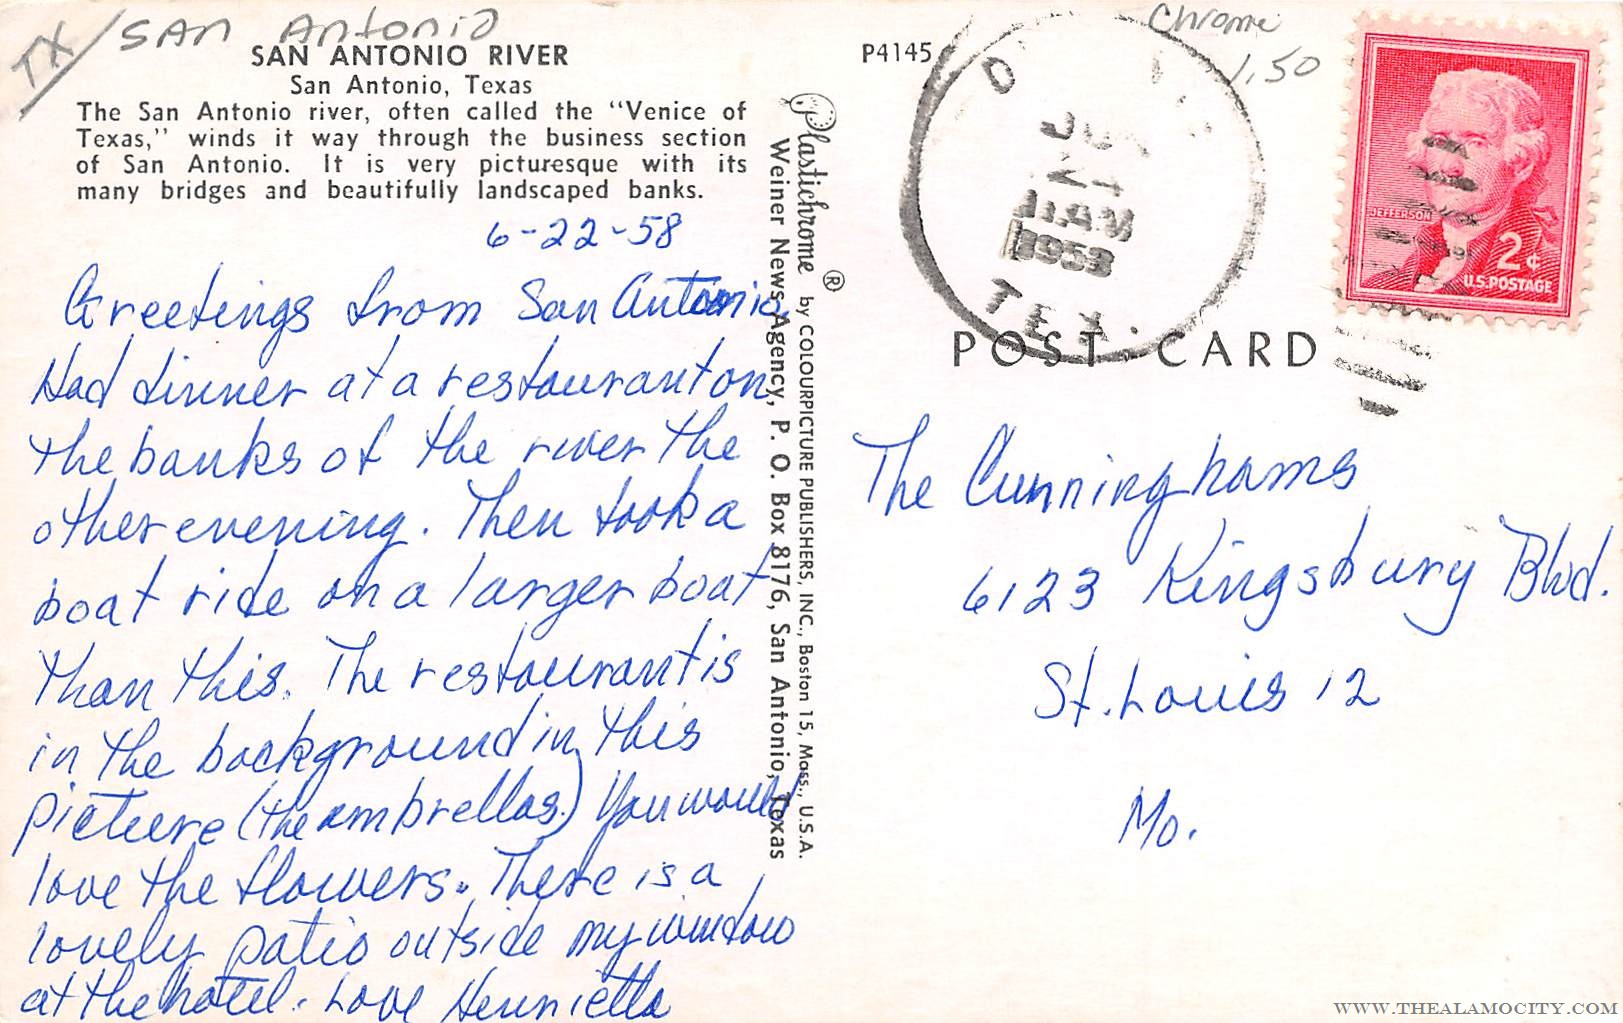 TX/SAN Antonio
SAN ANTONIO RIVER
San Antonio, Texas
The San Antonio river, often called the "Venice of
Texas," winds it way through the business section
of San Antonio. It is very picturesque with its
many bridges and beautifully landscaped banks.
6-22-58
Greetings from San Antonio
Had dinner at a restaurant on
the banks of the river the
other evening. Then took a
boat ride on a larger boat
than this. The restaurant is
in the background in this
picture (the umbrellas.) You would
love the flowers. There is a
lovely patio outside my window
at the hotel. Love Henrietta
Plastichrome ® by COLOURPICTURE PUBLISHERS, INC., Boston 15, Mass., U.S.A.
Weiner News Agency, P. O. Box 8176, San Antonio, Texas
P4145
Chrome
1.50
24
1958
TEX.
JEFFERSON
2¢
U.S. POSTAGE
POST CARD
The Cunninghams
6123 Kingsbury Blvd.
St. Louis 12
Mo.
WWW.THEALAMOCITY.COM